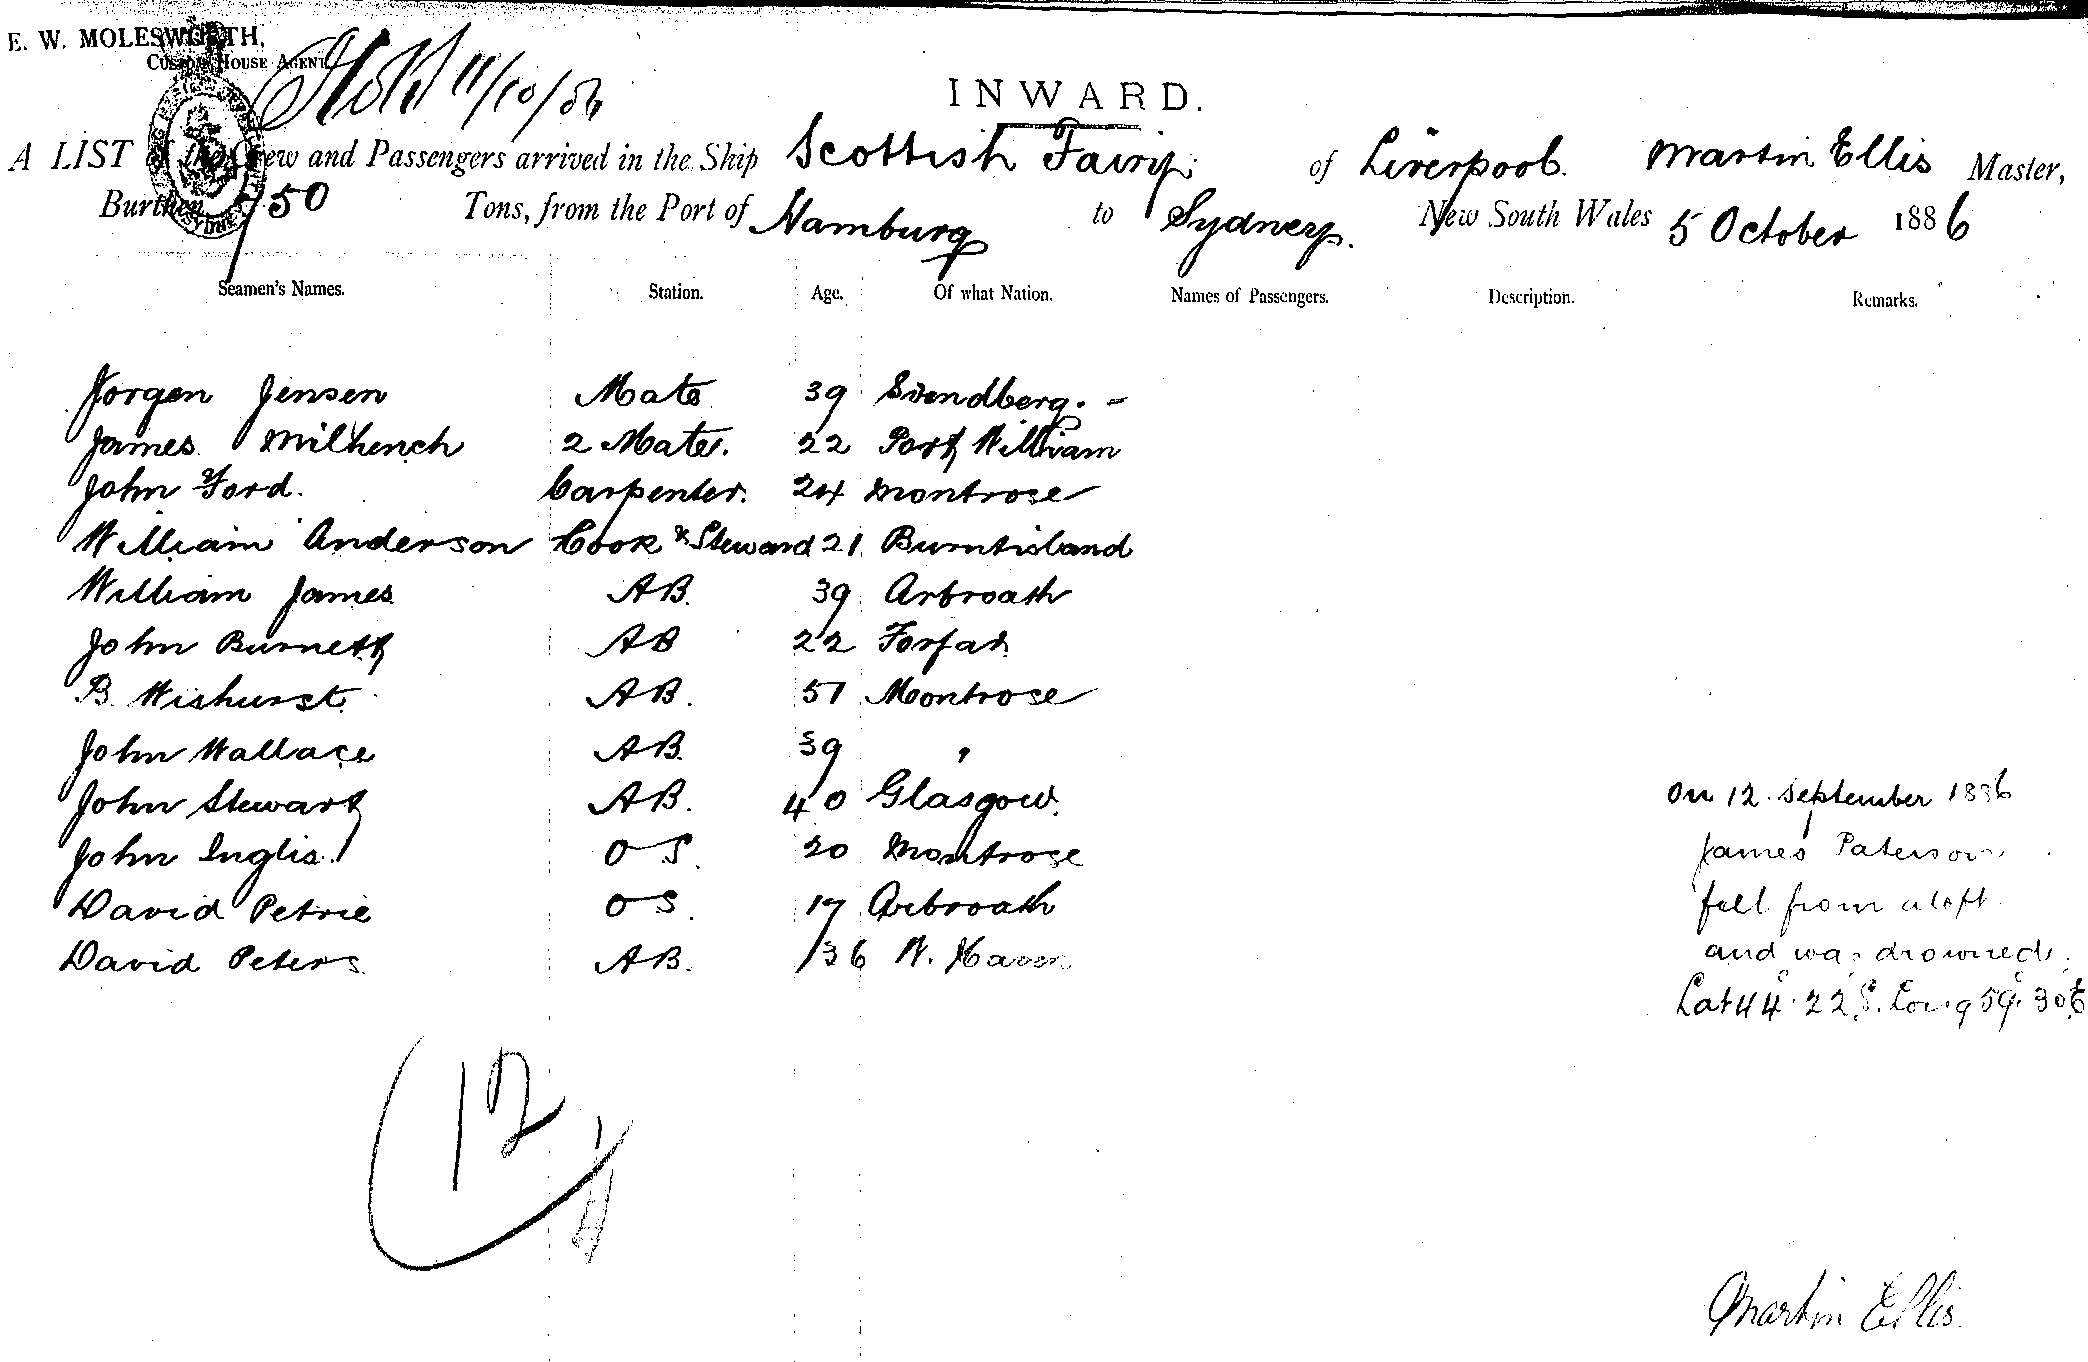 E. W. MOLESWORTH,
CUSTOM HOUSE AGENT
11/10/86
INWARD.
A LIST of the Crew and Passengers arrived in the Ship Scottish Fairy of Liverpool. Martin Ellis Master,
Burthen 750 Tons, from the Port of Hamburg to Sydney. New South Wales 5 October 1886
Seamen's Names. Station. Age. Of what Nation. Names of Passengers. Description. Remarks.
Jorgen Jensen Mate 39 Svendberg. -
James Milhench 2 Mate. 22 Port William
John Ford. Carpenter. 24 Montrose
William Anderson Cook & Steward 21 Burntisland
William James AB. 39 Arbroath
John Burnett AB 22 Forfar
B. Wishurst. AB. 51 Montrose
John Wallace AB. 39 "
John Stewart AB. 40 Glasgow. On 12 September 1886
John Inglis. O S. 20 Montrose James Paterson
David Petrie O S. 17 Arbroath fell from aloft
David Peters AB. 36 N. Haven and was drowned.
Lat 44° 22 S. Long 59° 30 E
12
Martin Ellis